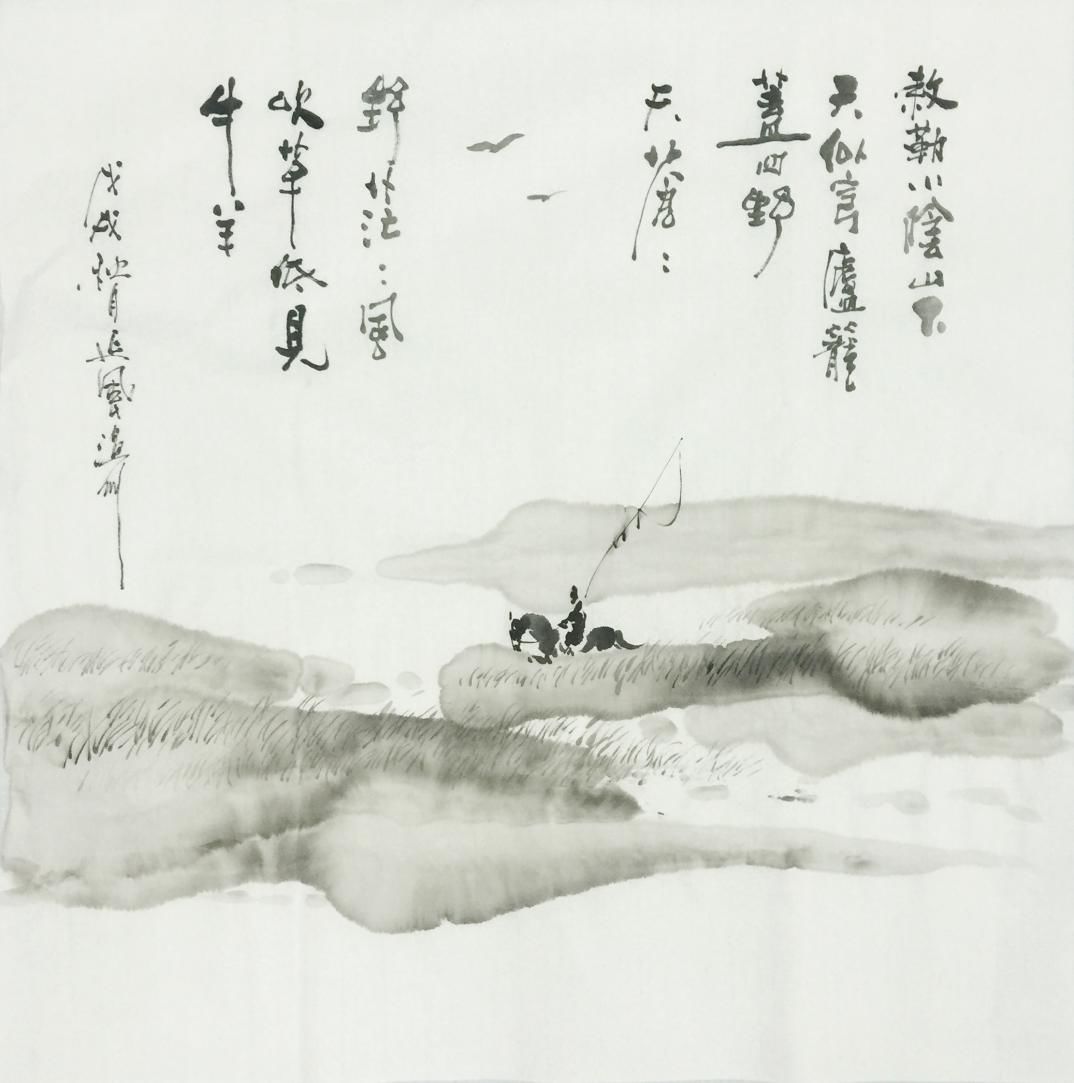 敕勒川陰山下
天似穹廬籠
蓋四野
天蒼〻
野茫〻風
吹草低見
牛羊
戊戌秋月追風